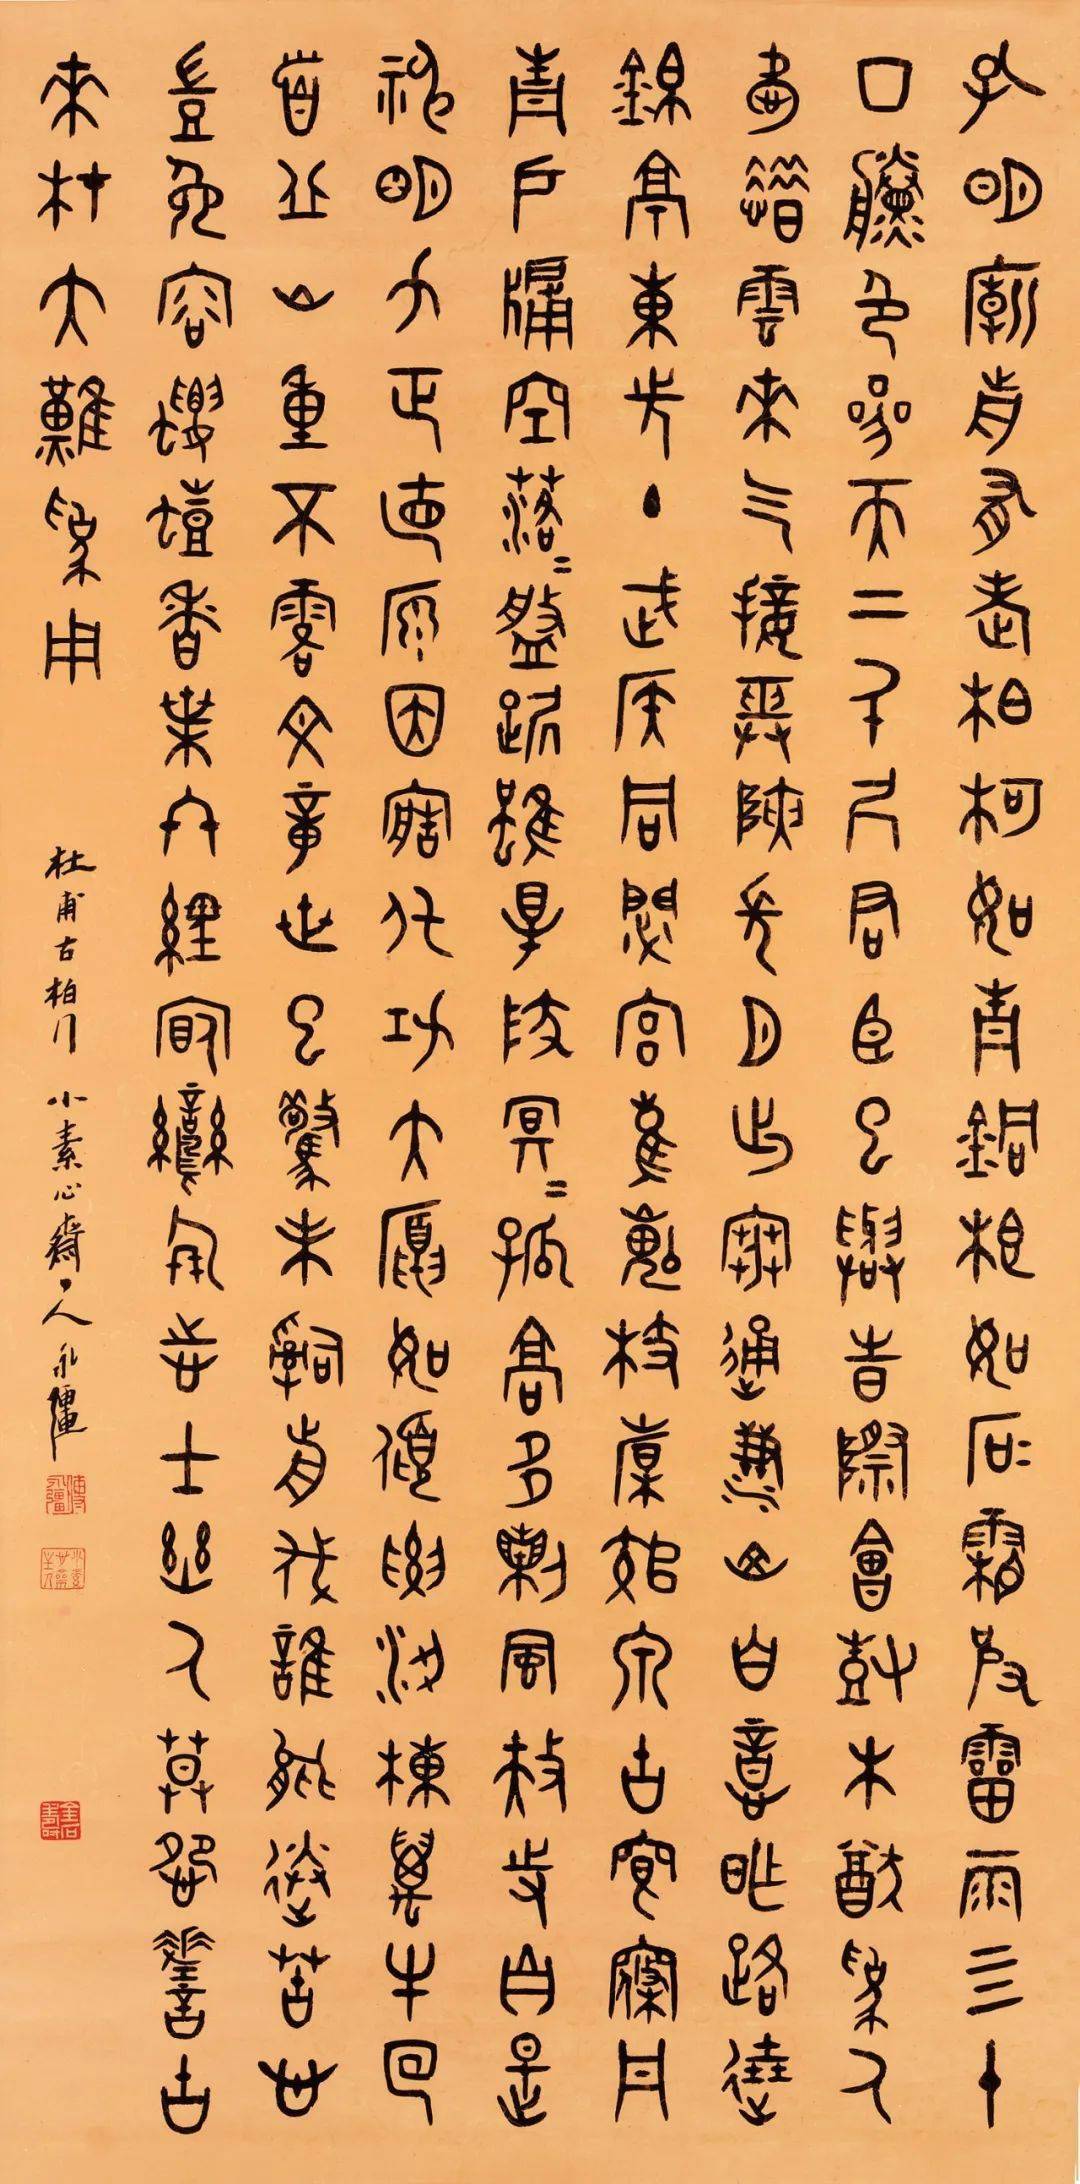 孔明廟前有老柏柯如青銅根如石霜皮霤雨四十
囗黛色參天二千尺君臣已與時際會樹木猶為人
愛惜雲來气接巫峽長月出寒通雪山白意昨路繞
錦亭東先主武侯同閟宮崔嵬枝幹郊原古窈窕丹
青戶牖空落=盤踞雖得地冥=孤高多烈風扶持自是
神明力正直原因造化功大廈如傾要梁棟萬牛回
首丘山重不露文章世已驚未辭前伐誰能送苦心
豈免容螻蟻香葉終經宿鸞鳳志士幽人莫怨嗟古
來材大難為用
杜甫古柏行 小素心齋主人永彊